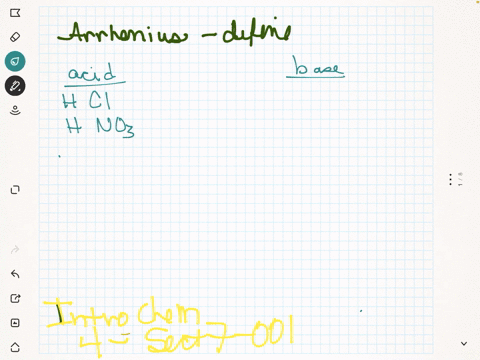 Arrhenius - define
acid base
H Cl
H NO3
Intro Chem
4 - Sect 7-001
1/6